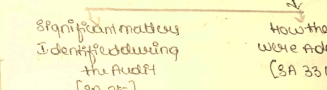 Significant matters
Identified during
the Audit
How the
were Ad
(SA 330